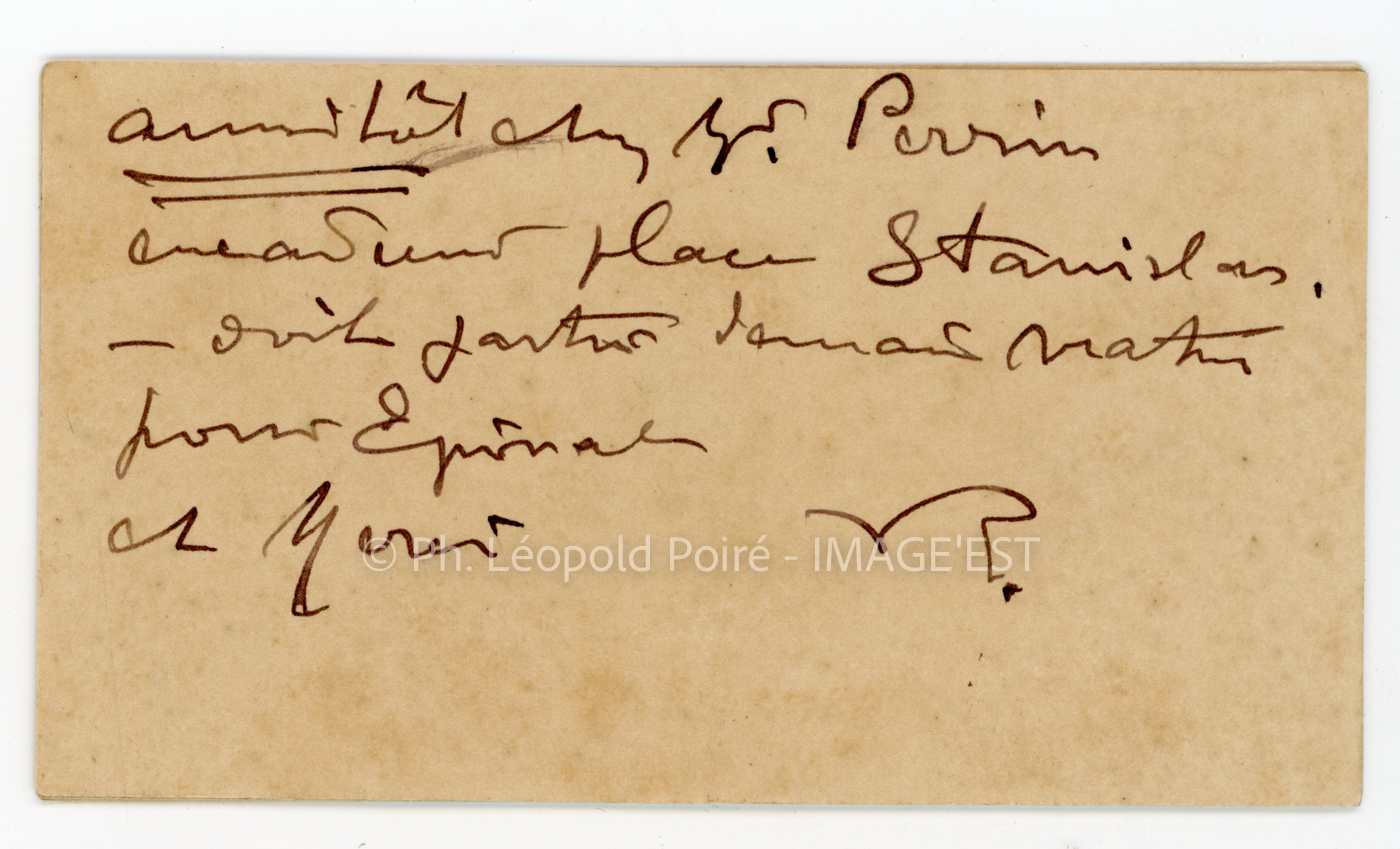 aussitôt chez Mr. Perrin
encadreur place Stanislas.
— doit partir demain matin
pour Epinal
et
© Ph. Léopold Poiré - IMAGE'EST